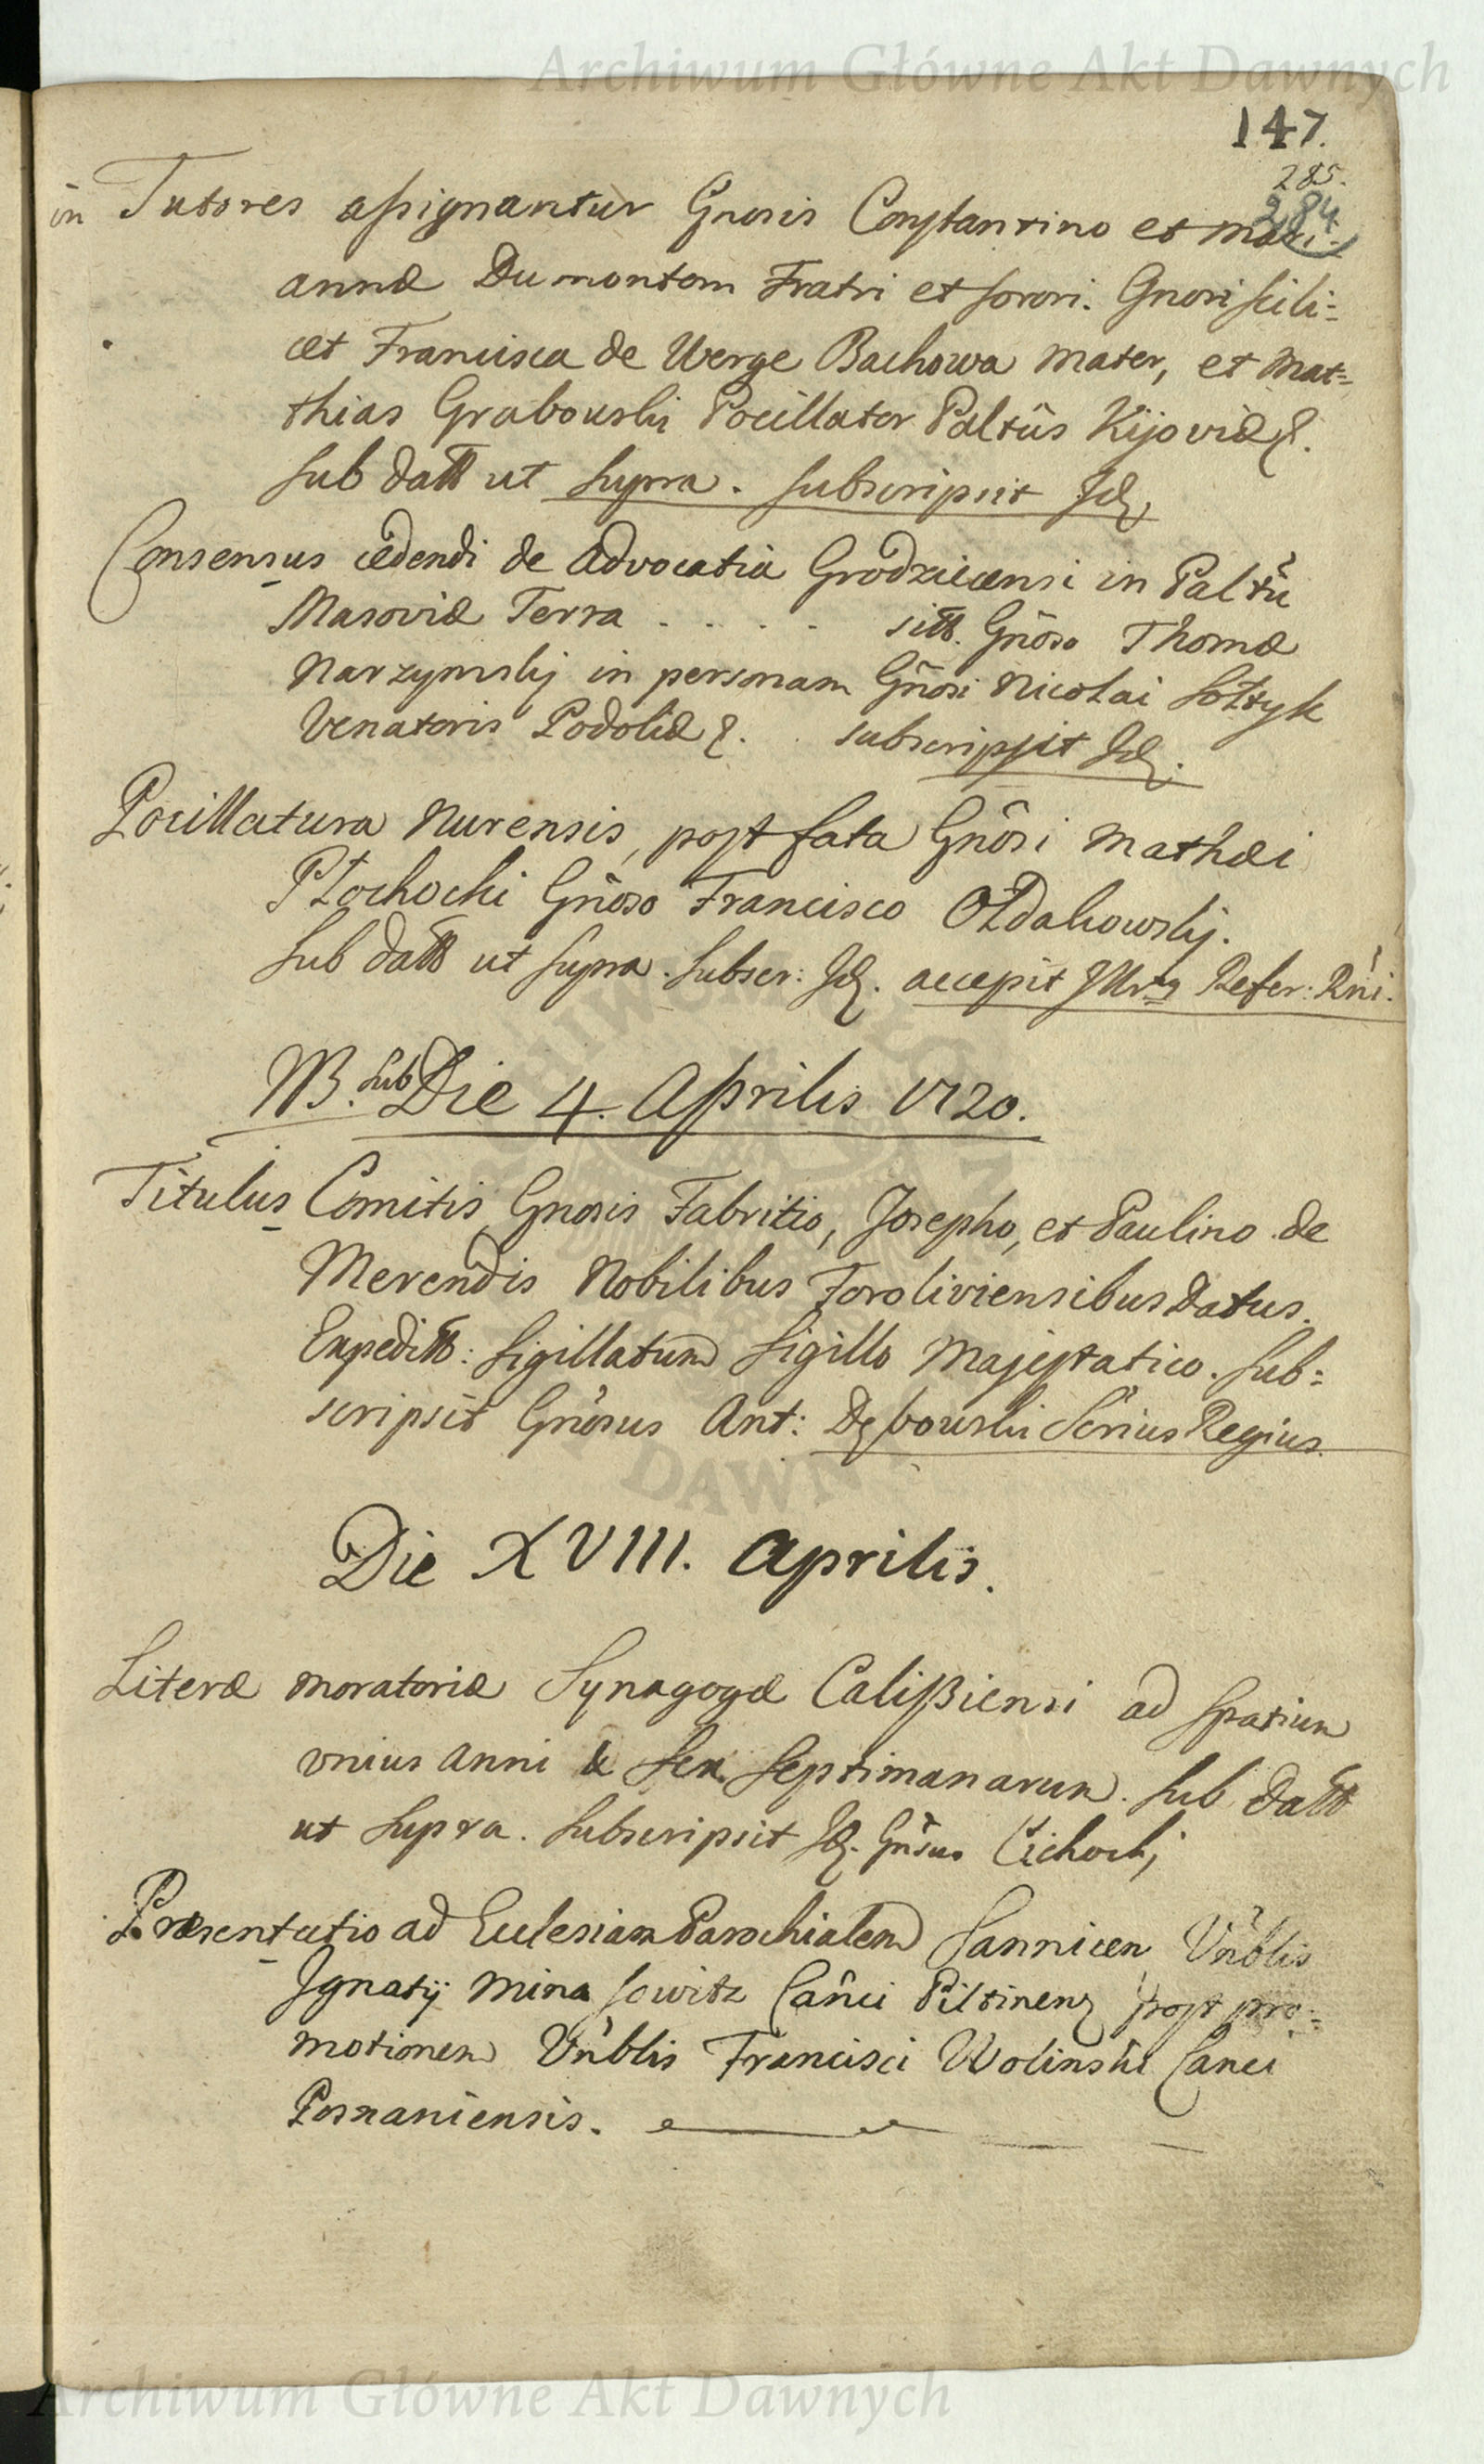 Archiwum Główne Akt Dawnych
147.
285.
284
in Tutores assignantur Gnosis Constantino et Mari-
annæ Dumontom Fratri et sorori. Gnosi scili=
cet Francisca de Werge Bachowa Mater, et Mat=
thias Grabowski Pocillator Paltûs Kijoviæ &.
sub datt ut supra. subscripsit Id.
Consensus cedendi de Advocatia Grodzicensi in Paltũ
Masoviæ Terra . . . . . sitt. Gnõso Thomæ
Narzymskij in personam Gnõsi Nicolai Sołtyk
Venatoris Podoliæ &. subscripsit Id.
Pocillatura Nurensis, post fata Gnõsi Mathæi
Płochocki Gnõso Francisco Ołdakowskij.
Sub datt ut supra. Subscr: Id. accepit Illrs Refer: Rni.
NB. sub Die 4. Aprilis 1720.
Titulus Comitis Gnosis Fabritio, Josepho, et Paulino de
Merendis Nobilibus Foroliviensibus datus.
Expeditt: Sigillatum Sigillo Majestatico. Sub=
scripsit Gnõsus Ant: Dębowski Scrius Regius.
Die XVIII. Aprilis.
Literæ moratoriæ Synagogæ Calißiensi ad spatium
unius anni & sex septimanarum. sub datt
ut supra. Subscripsit Id. Gnõsus Cichockj
Præsentatio ad Ecclesiam Parochialem Sannicen Vnblis
Ignatij Minasowitz Cañci Piltinen post pro=
motionem Vnblis Francisci Wolinski Canci
Posnaniensis.
Archiwum Główne Akt Dawnych